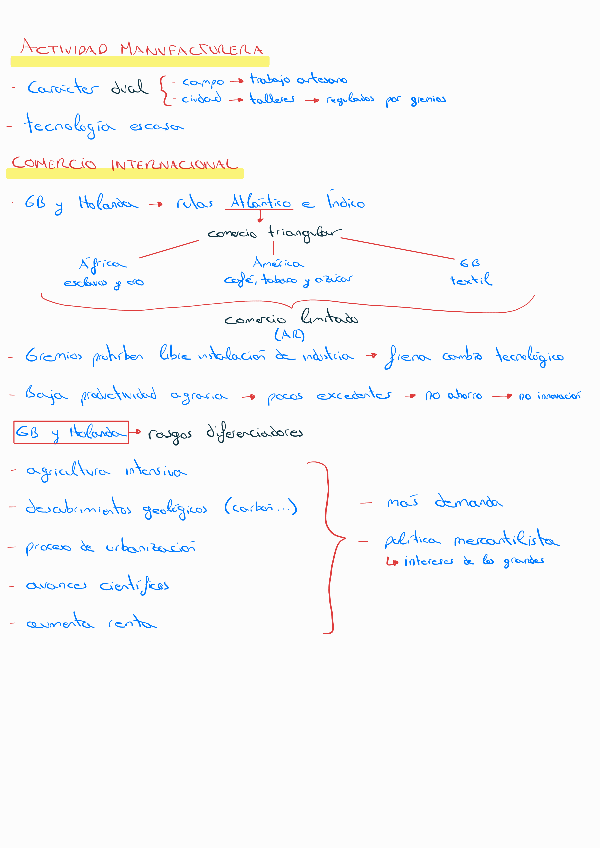 ACTIVIDAD MANUFACTURERA
- Carácter dual { - campo → trabajo artesano
- ciudad → talleres → regulados por gremios
- tecnología escasa
COMERCIO INTERNACIONAL
- GB y Holanda → rutas Atlántico e Índico
comercio triangular
África América GB
esclavos y oro café, tabaco y azúcar textil
comercio limitado
(AR)
- Gremios prohíben libre instalación de industria → frena cambio tecnológico
- Baja productividad agraria → pocos excedentes → no ahorro → no innovación
GB y Holanda → rasgos diferenciadores
- agricultura intensiva
- descubrimientos geológicos (carbón...)
- proceso de urbanización
- avances científicos
- aumenta renta
- más demanda
- política mercantilista
↳ intereses de los grandes